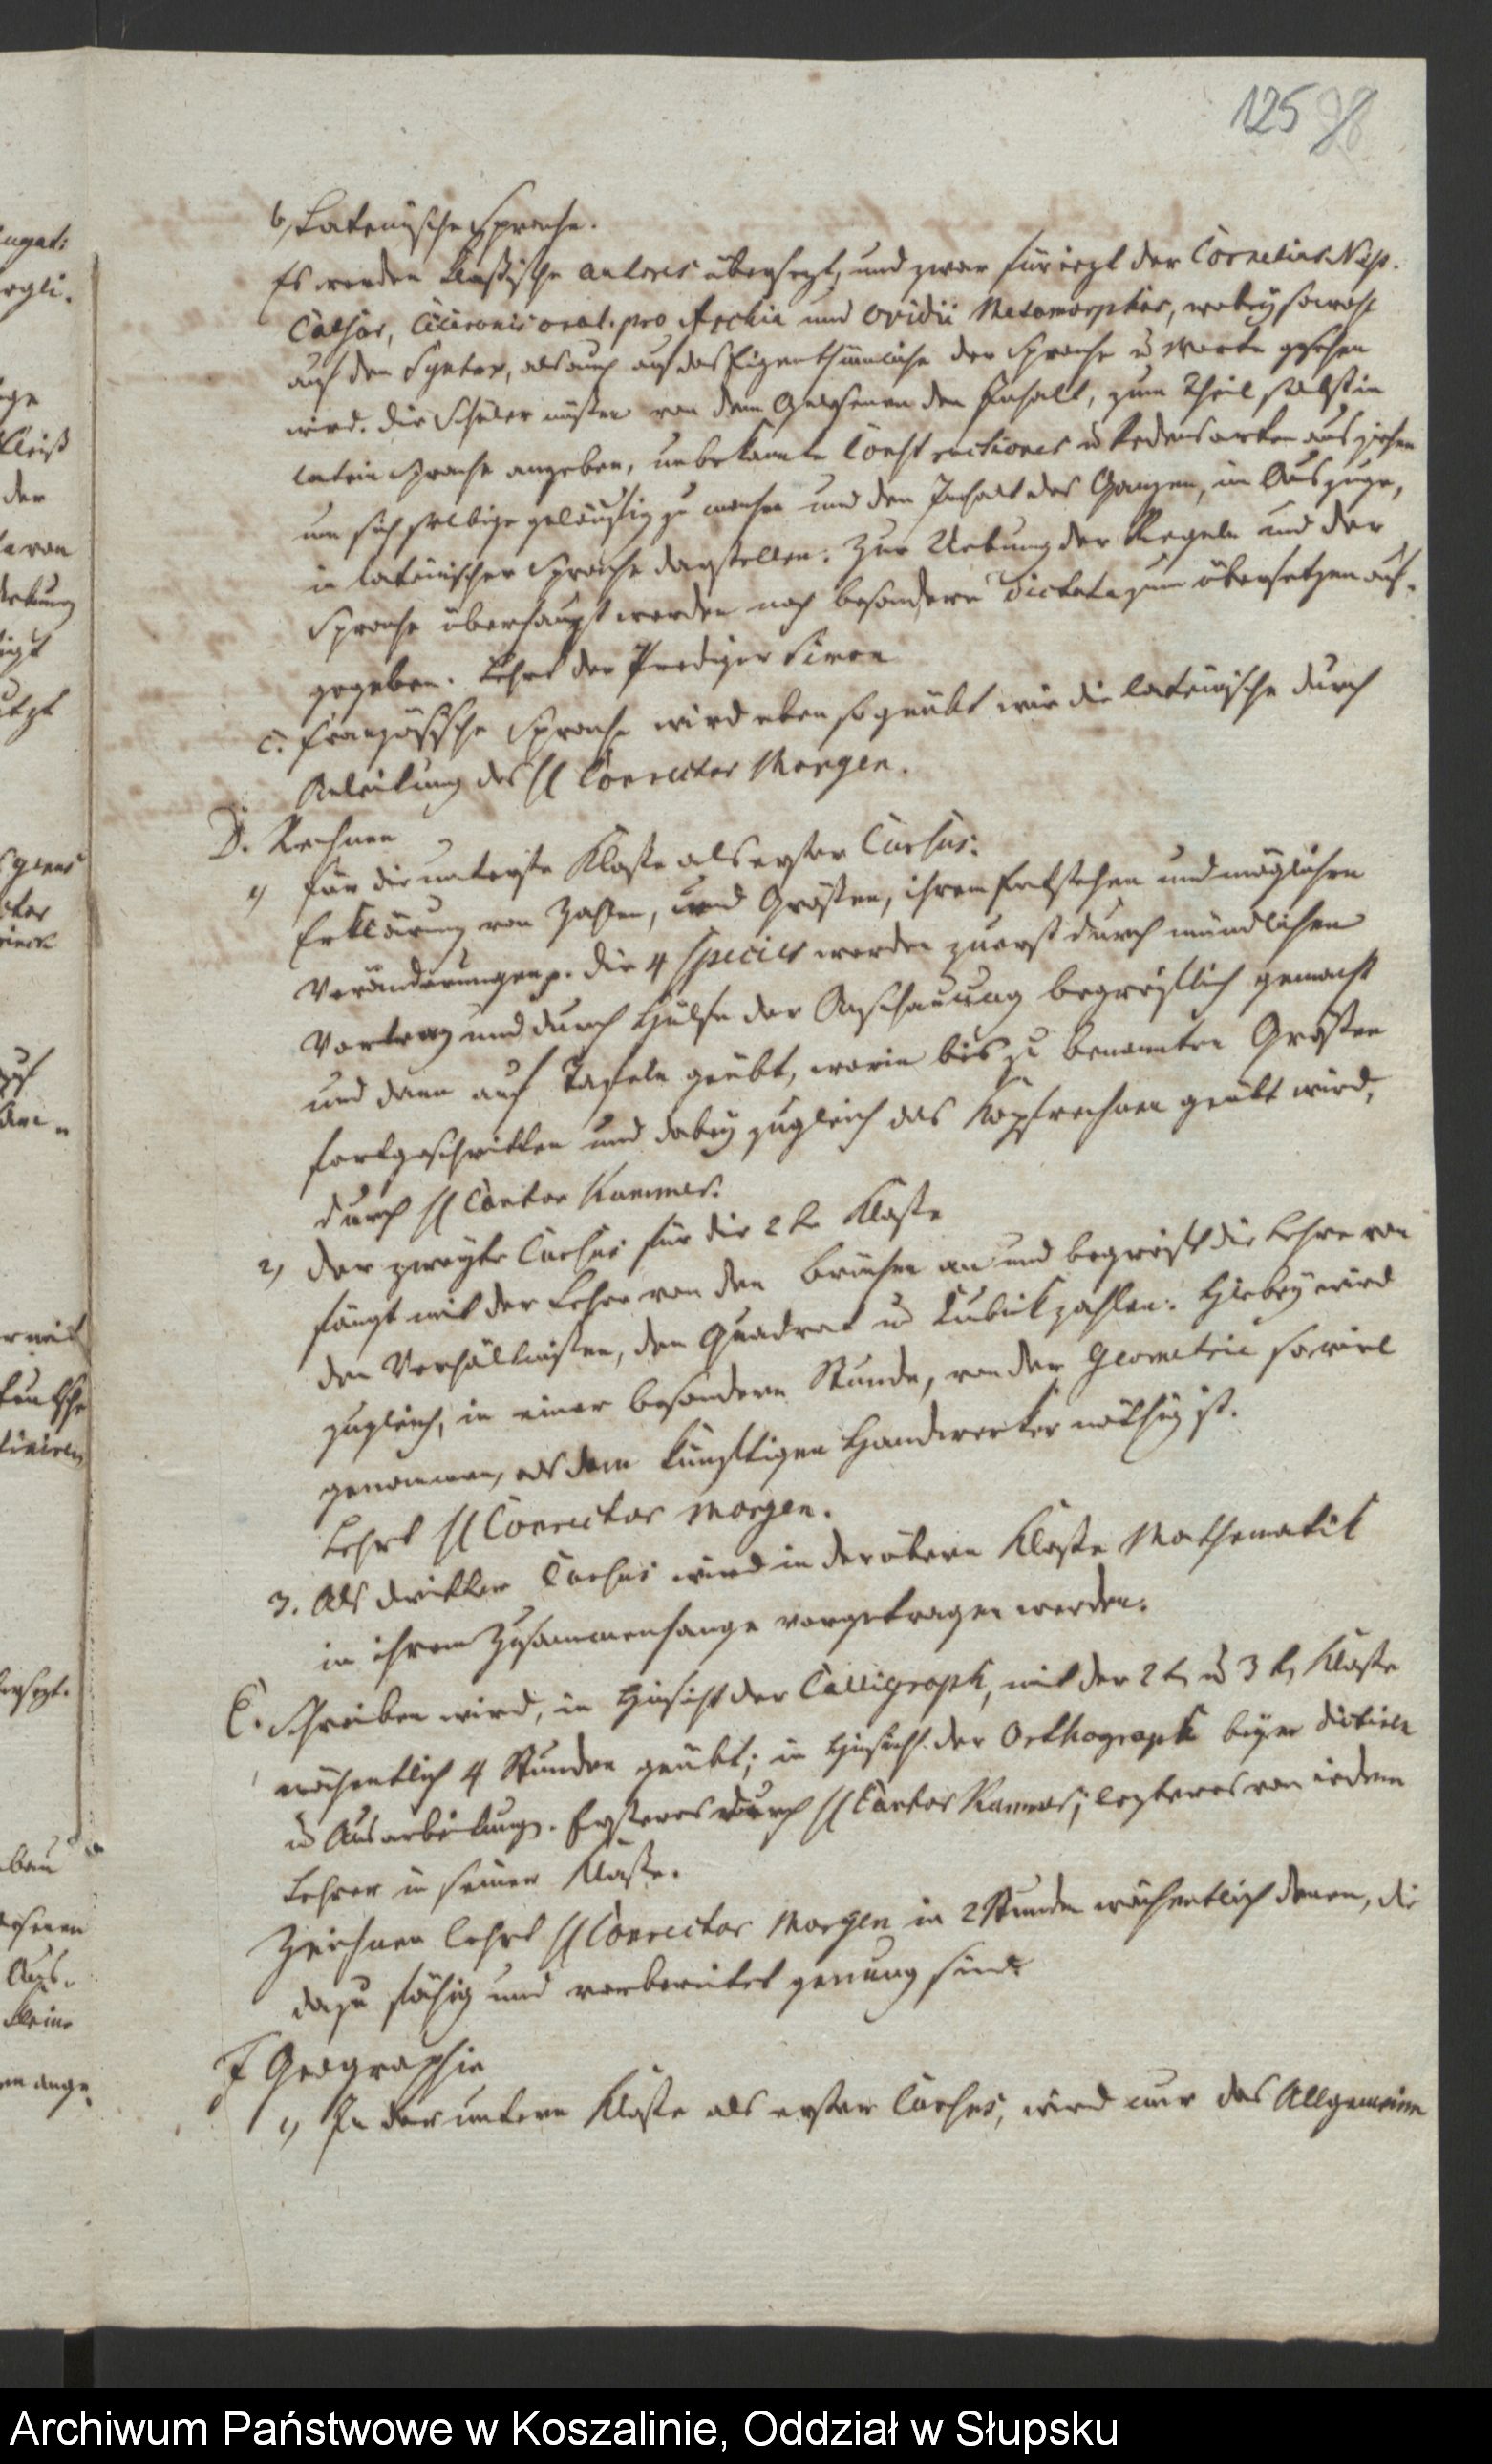 125 98
b, Lateinische Sprache.
Es werden klaßische autores übersezt, und zwar für iezt der Cornelius Nep.
Caesar, Ciceronis orat. pro Archia und Ovidii Metamorphos, wobey sowohl
auf den Syntax, als auch auf das Eigenthümliche der Sprache u Worte gesehen
wird. Die Schüler müßen von dem Gelesenen den Inhalt, zum Theil selbst in
latein Sprache angeben, unbekannte Constructiones u Redensarten ausziehen
um sich selbige geläufig zu machen und den Inhalt des Ganzen, im Auszuge,
in lateinischer Sprache darstellen. Zur Uebung der Regeln und der
Sprache überhaupt werden noch besondere Dictata zum übersetzen auf-
gegeben. Lehrt der Prediger
c. französische Sprache wird eben so geübt wie die lateinische durch
Anleitung des H Conrector Morgen.
D. Rechnen
1) für die unterste Klaße als erster Cursus.
Erklärung von Zahlen, und Größen, ihrem Entstehen und möglichen
Veränderungen p. die 4 Species werden zuerst durch mündlichen
Vortrag und durch Hülfe der Anschauung begreiflich gemacht
und dann auf Tafeln geübt, worin bis zu benannten Größen
fortgeschritten und dabey zugleich das Kopfrechnen geübt wird,
durch H Cantor Kummer.
2) der zweyte Cursus für die 2te Klaße
fängt mit der Lehre von den Brüchen an und begreift die Lehre von
den Verhältnißen, den Quadrat u Kubikzahlen. Hiebey wird
zugleich, in einer besondern Stunde, von der Geometrie soviel
genommen, als dem künftigen Handwerker nöthig ist.
Lehrt H Conrector Morgen.
3. Als dritter Cursus wird in der obern Klaße Mathematik
in ihrem Zusammenhange vorgetragen werden.
E. Schreiben wird, in Hinsicht der Calligraph, mit der 2t, u 3t, Klaße
wöchentlich 4 Stunden geübt; in Hinsicht der Orthograph beym dictiren
u Ausarbeitung. Ersteres durch H Cantor Kummer; lezteres von iedem
Lehrer in seiner Klaße.
Zeichnen lehrt H Conrector Morgen in 2 Stunden wöchentlich denen, die
dazu fähig und vorbereitet genung sind.
F Geographie
1) In der untern Klaße als erster Cursus, wird nur das Allgemeine
Archiwum Państwowe w Koszalinie, Oddział w Słupsku